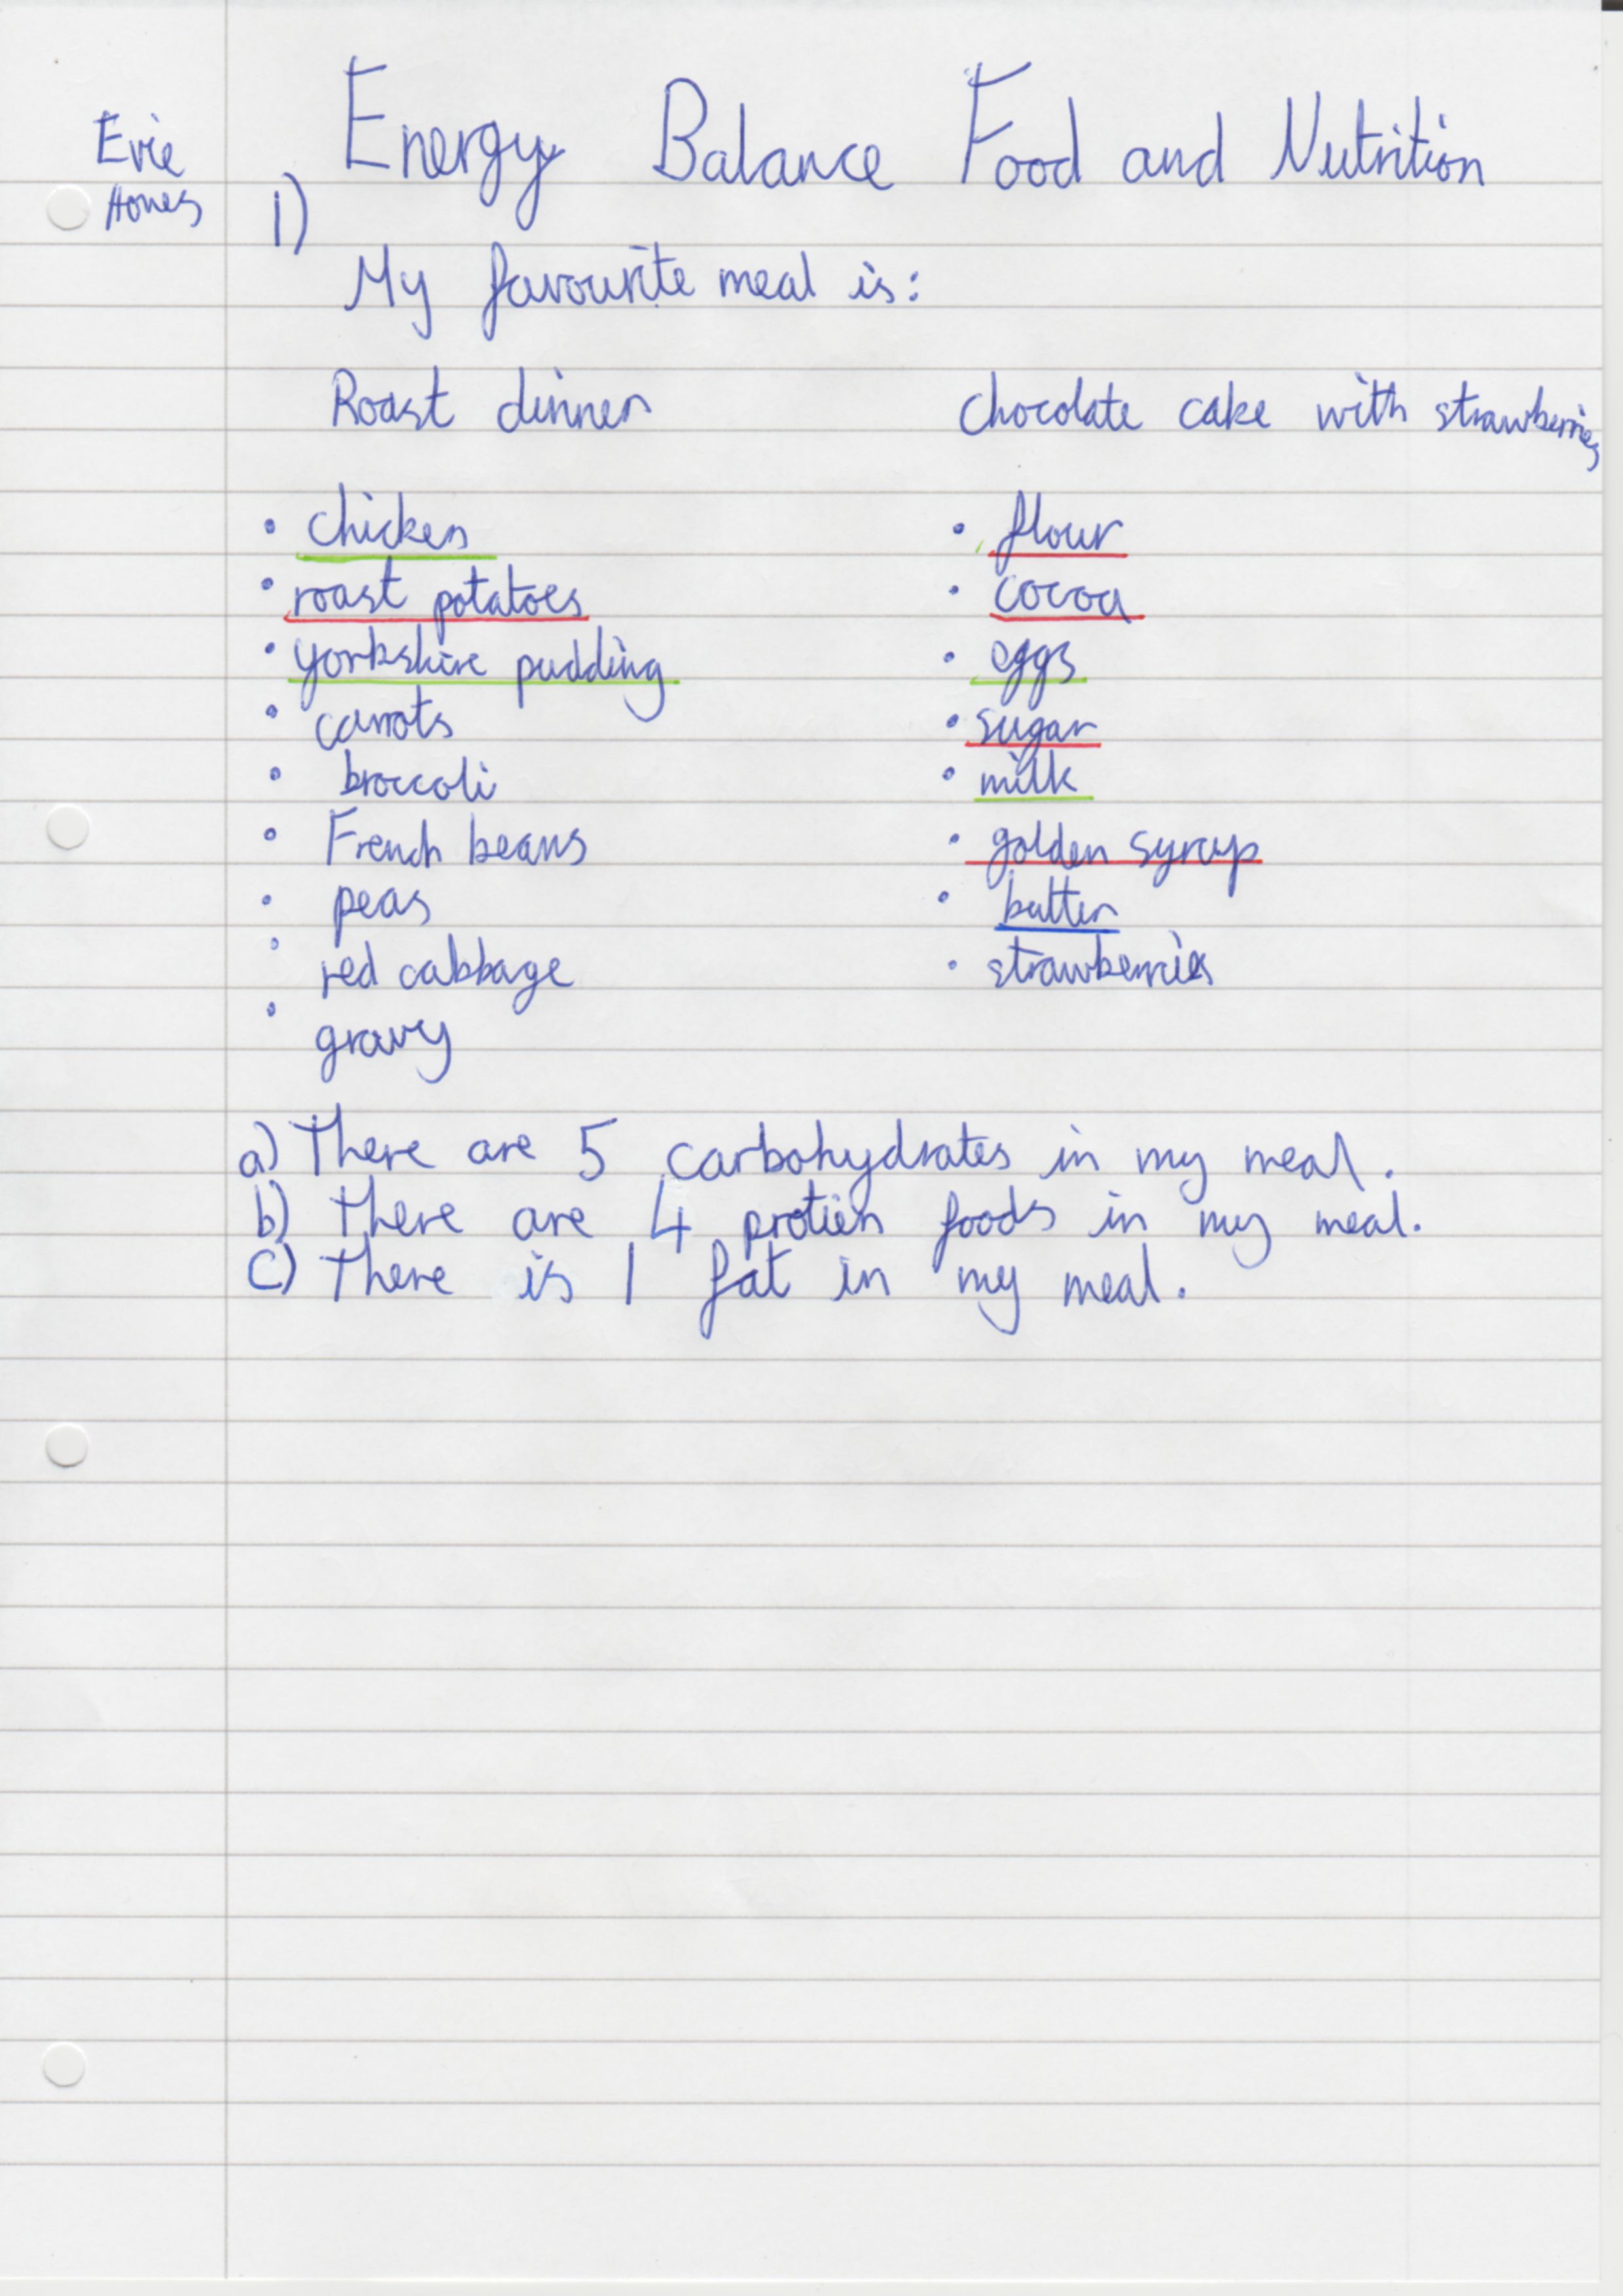 Energy Balance Food and Nutrition
Evie
1)
My favourite meal is:
Roast dinner
chocolate cake with strawberries
• chicken
• roast potatoes
• yorkshire pudding
• carrots
• broccoli
• French beans
• peas
• red cabbage
• gravy
• flour
• cocoa
• eggs
• sugar
• milk
• golden syrup
• butter
• strawberries
a) There are 5 carbohydrates in my meal.
b) There are 4 protien foods in my meal.
c) There is 1 fat in my meal.